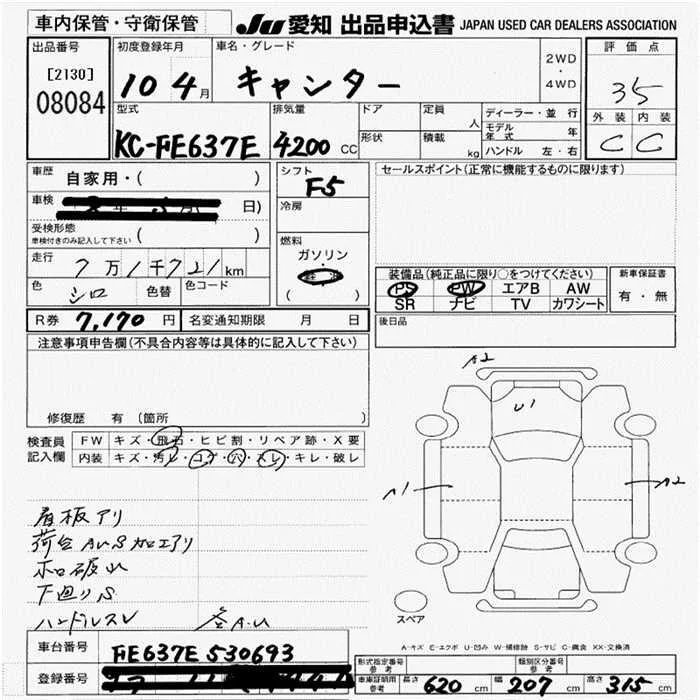 車内保管・守衛保管
JU 愛知 出品申込書 JAPAN USED CAR DEALERS ASSOCIATION
出品番号
[2130]
08084
初度登録年月
10 4月
車名・グレード
キャンター
2WD
・
4WD
評価点
3.5
外装 内装
C C
型式
KC-FE637E
排気量
4200 CC
ドア
形状
定員
人
積載
kg
ディーラー・並行
モデル年式 年
ハンドル 左・右
車歴 自家用・( )
車検 日)
受検形態
車検付きのみ記入して下さい ( )
走行 7万1千721km
色 シロ 色替 色コード
シフト
F5
冷房
燃料
ガソリン
( )
セールスポイント(正常に機能するものに限ります)
装備品(純正品に限り○をつけてください)
PS PW エアB AW
SR ナビ TV カワシート
新車保証書
有・無
後日品
R券 7,170円 名変通知期限 月 日
注意事項申告欄(不具合内容等は具体的に記入して下さい)
修復歴 有(箇所 )
検査員
記入欄
FW キズ・飛石・ヒビ割・リペア跡・X要
内装 キズ・汚レ・コゲ・穴・スレ・キレ・破レ
看板アリ
荷台AUS加工アリ
ホロ破れ
下廻りS
ハンドルスレ A.U
A2
U1
A1
A2
スペア
A-キズ E-エクボ U-凹み W-補修跡 S-サビ C-腐食 XX-交換済
車台番号 FE637E 530693
登録番号
形式指定番号
参考
類別区分番号
参考
車庫証明用
参考
長さ 620 cm 幅 207 cm 高さ 315 cm